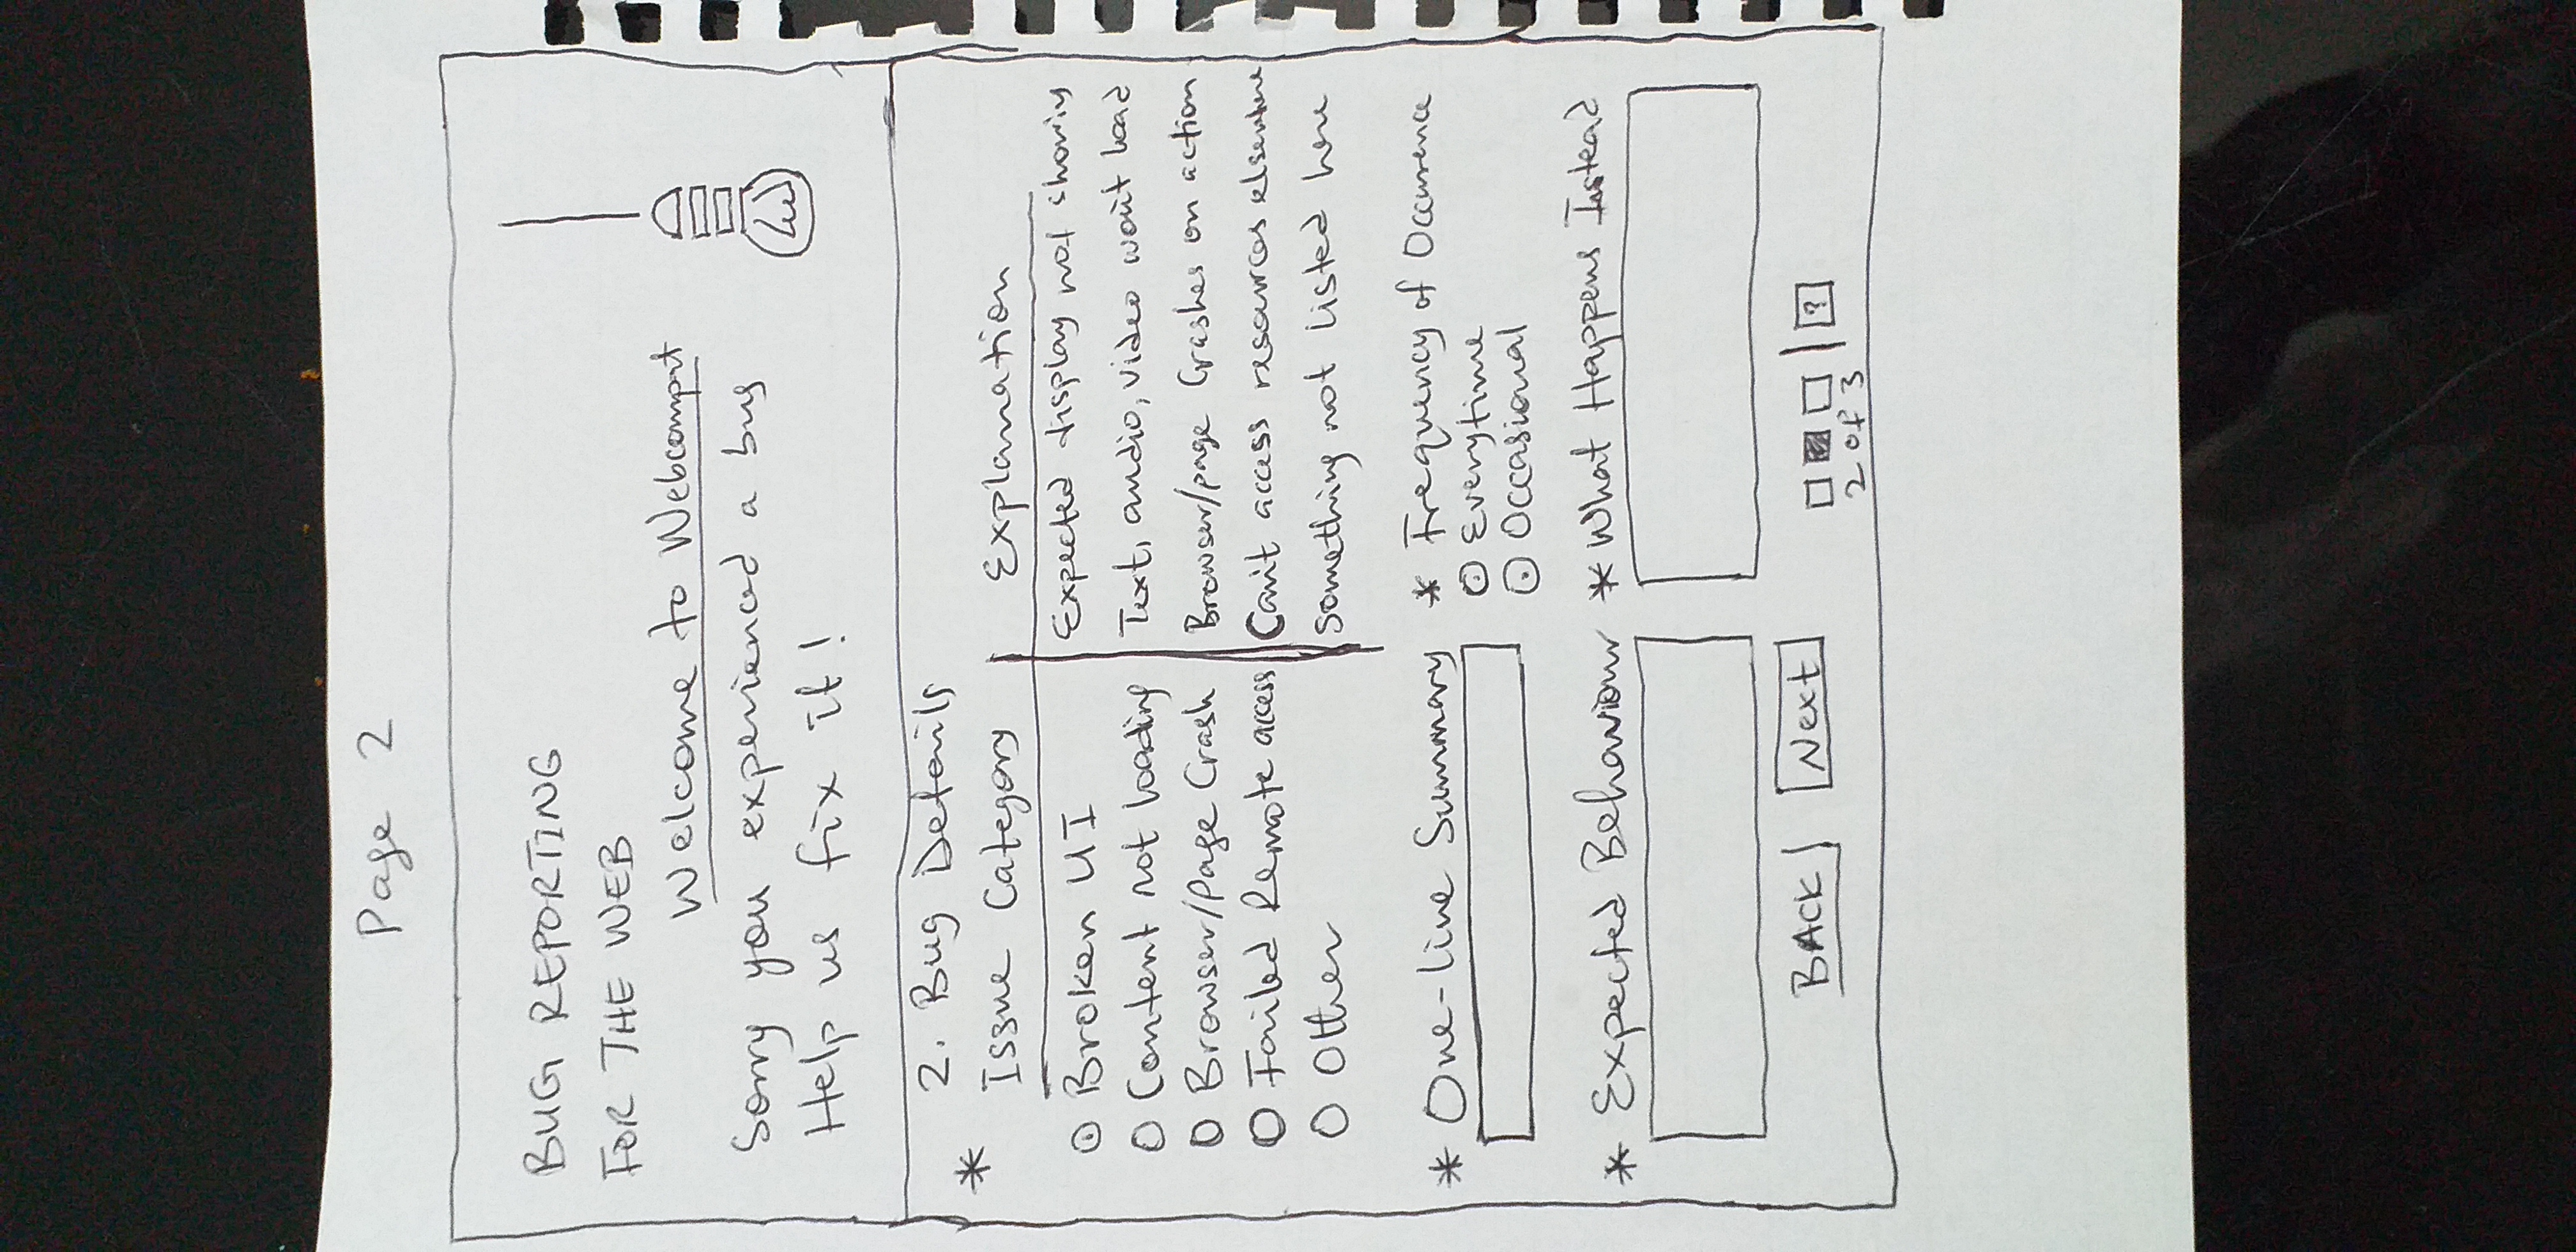 Page 2
BUG REPORTING
FOR THE WEB
Welcome to Webcompat
Sorry you experienced a bug
Help us fix it!
2. Bug Details
* Issue Category Explanation
Broken UI Expected display not showing
Content not loading Text, audio, video won't load
Browser/Page Crash Browser/page Crashes on action
Failed Remote access Can't access resources elsewhere
Other Something not listed here
* One-line Summary * Frequency of Occurrence
Everytime
Occasional
* Expected Behaviour * What Happens Instead
BACK Next
2 of 3 ?